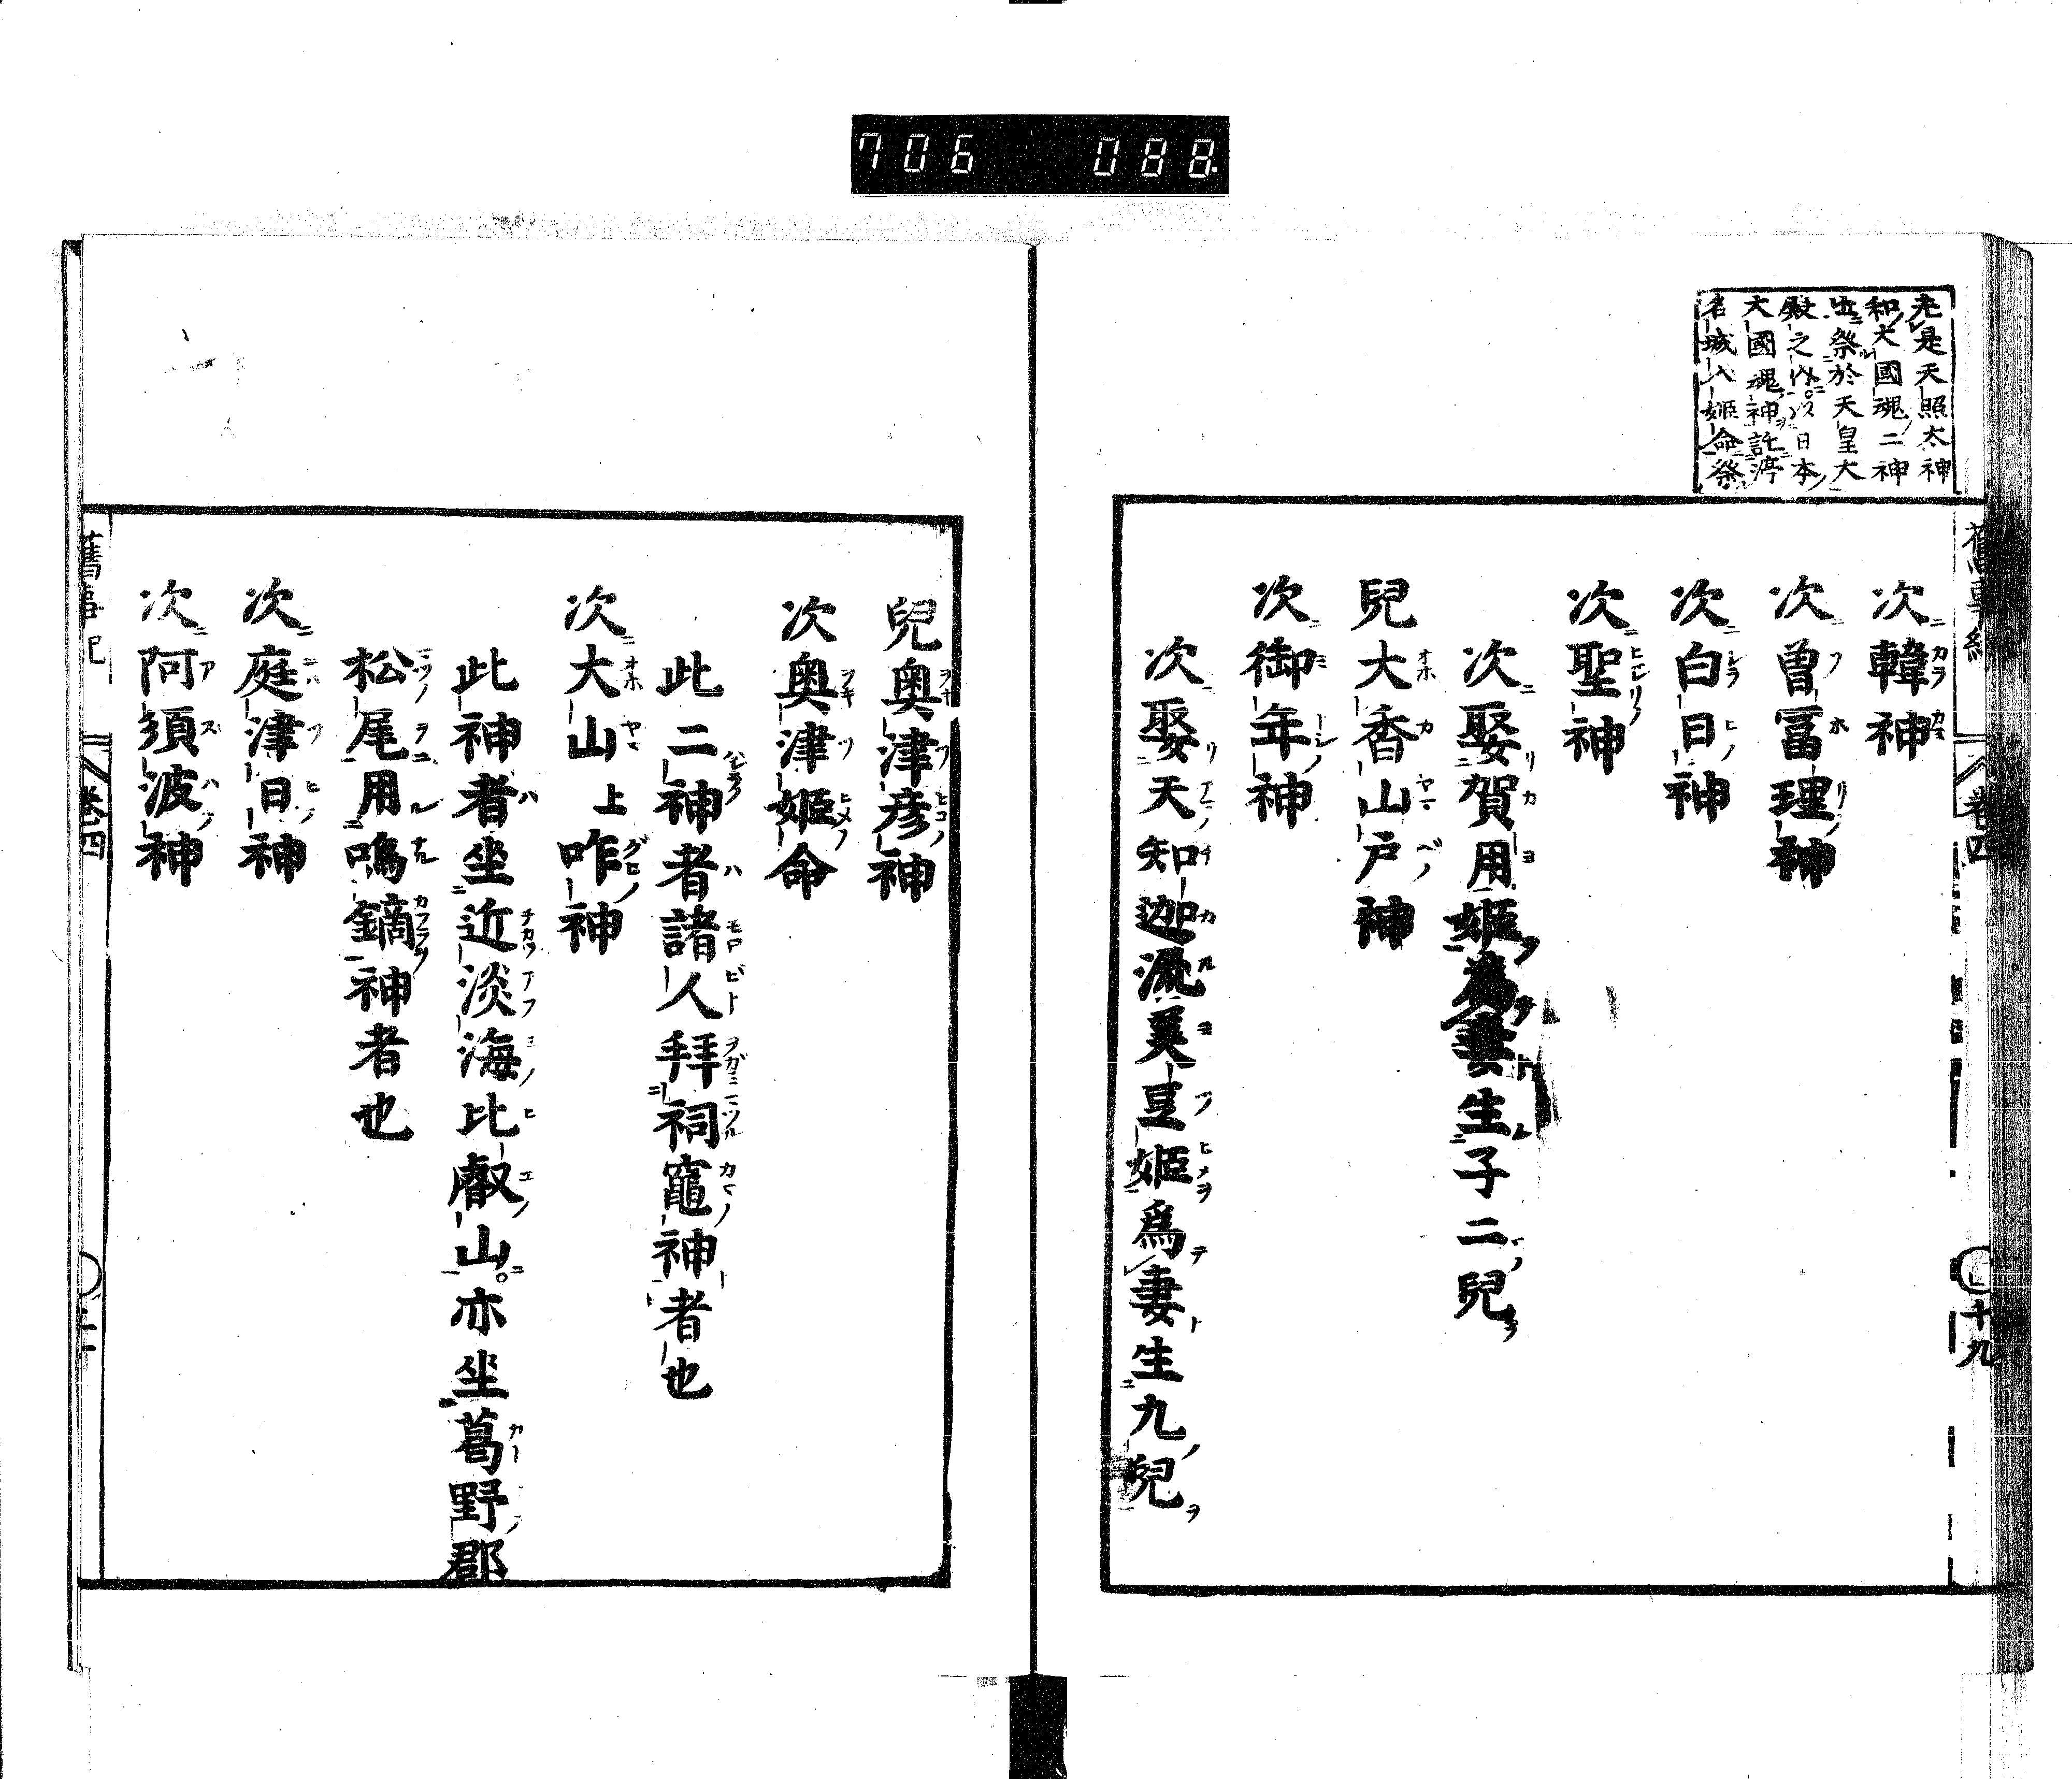 706 088
先是天照太神
和大國魂二神
並祭於天皇大
殿之内以日本
大國魂神託渟
名城入姬命祭
次韓神
次曽冨理神
次白日神
次聖神
次娶賀用姬為妻生子二兒
兒大香山戸神
次御年神
次娶天知迦流美豆姬爲妻生九兒
卷四
十九
兒奥津彦神
次奥津姬命
此二神者諸人拜祠竈神者也
次大山上咋神
此神者坐近淡海比叡山亦坐葛野郡
松尾用鳴鏑神者也
次庭津日神
次阿須波神
舊事紀
卷四